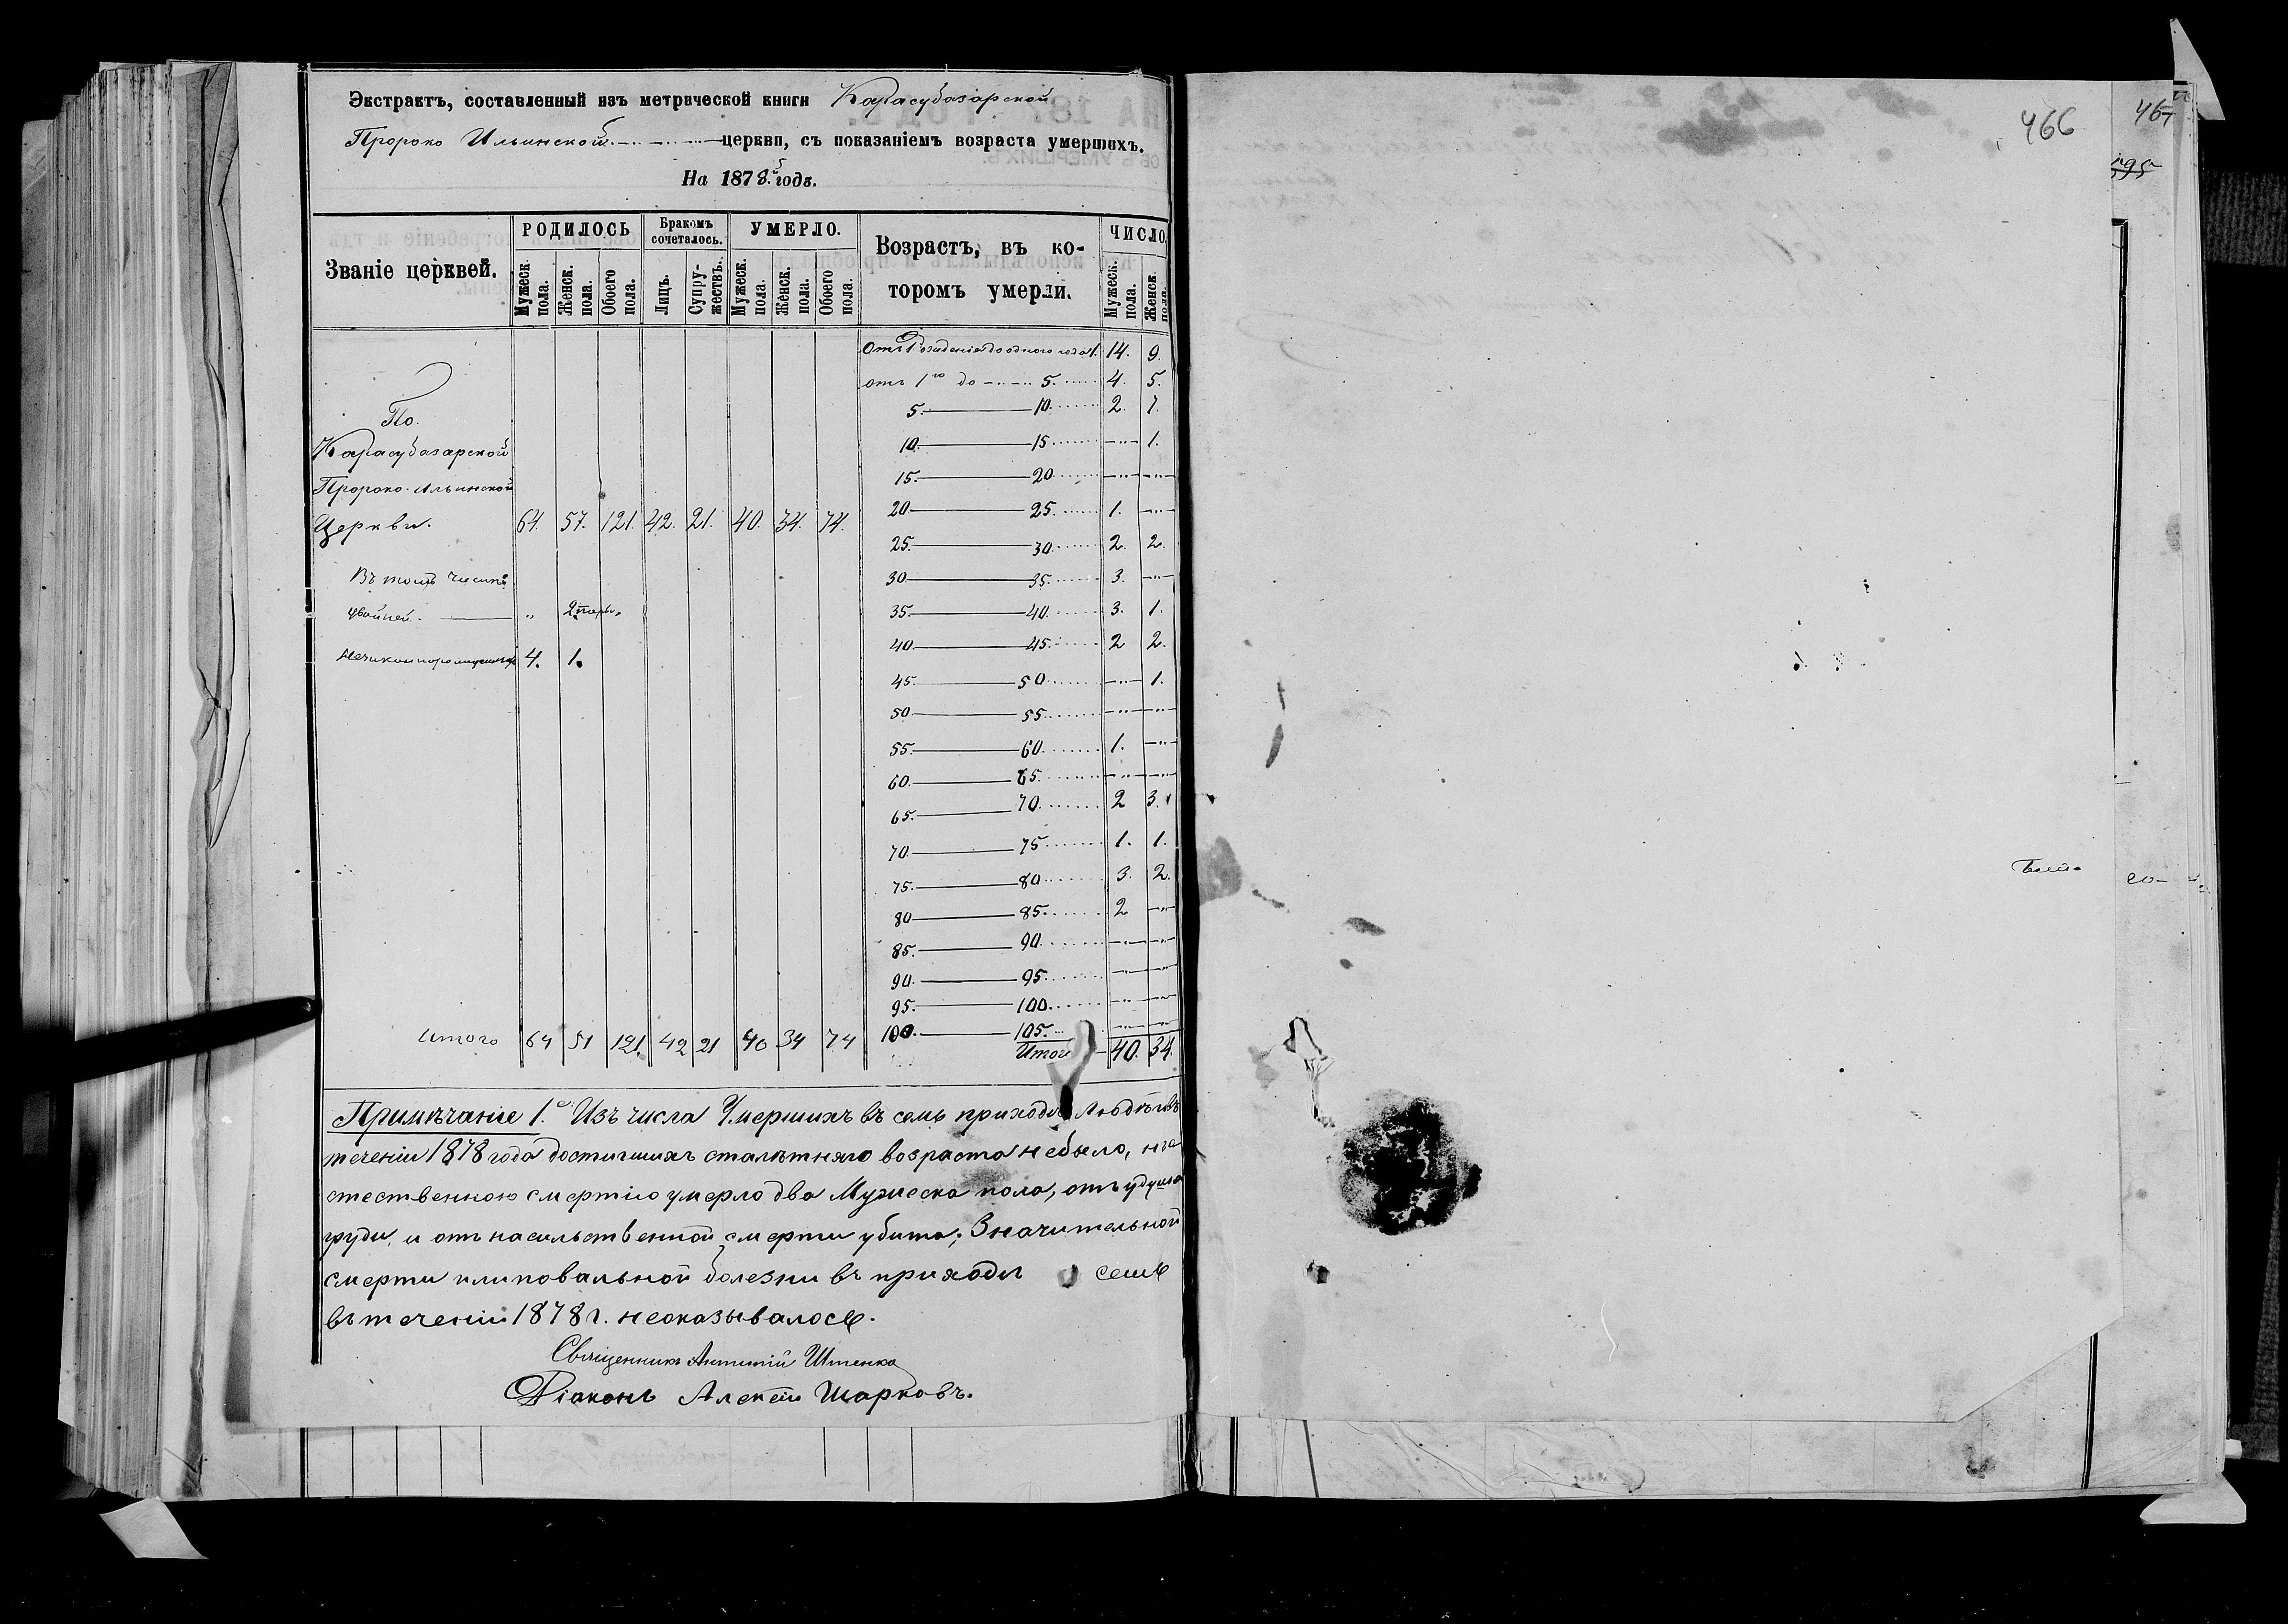 Экстрактъ, составленный изъ метрической книги Карасубазарской
Пророко Ильинской церкви, съ показаніемъ возраста умершихъ.
На 1878 годъ.
Званіе церквей. РОДИЛОСЬ Бракомъ сочеталось. УМЕРЛО. Возрастъ, въ которомъ умерли. ЧИСЛО.
Мужеск. пола. Женск. пола. Обоего пола. Лицъ. Супружествъ. Мужеск. пола. Женск. пола. Обоего пола. Мужеск. пола. Женск. пола.
По
Карасубазарской
Пророко-Ильинской
Церкви. 64. 57. 121. 42. 21. 40. 34. 74.
Въ томъ числѣ
двойней. " 2 пары.
4. 1.
Отъ Рожденія до одного года 1. 14. 9.
отъ 1го до 5. 4. 5.
5. 10. 2. 7.
10. 15 1.
15. 20
20 25. 1.
25. 30. 2. 2.
30 35. 3.
35. 40. 3. 1.
40. 45. 2 2.
45. 50. 1.
50 55.
55. 60. 1.
60. 65.
65. 70. 2 3.
70. 75 1. 1.
75. 80 3. 2.
80 85. 2
85. 90.
90. 95.
95. 100.
100. 105.
Итого 64 57 121. 42 21 40 34 74 40. 34.
Примѣчаніе 1.е Изъ числа Умершихъ въ семъ приходѣ людѣй въ
теченіи 1878 года достигшихъ сталѣтняго возраста небыло,
стественною смертію умерло два Мужеска пола, отъ
груди, и отъ насильственной смерти убита; Значительной
смерти или повальной болезни въ приходѣ семъ
въ теченіи 1878 г. неоказывалось.
Священникъ Штенко
Діаконъ Алексѣй Шарковъ.
466
467
595